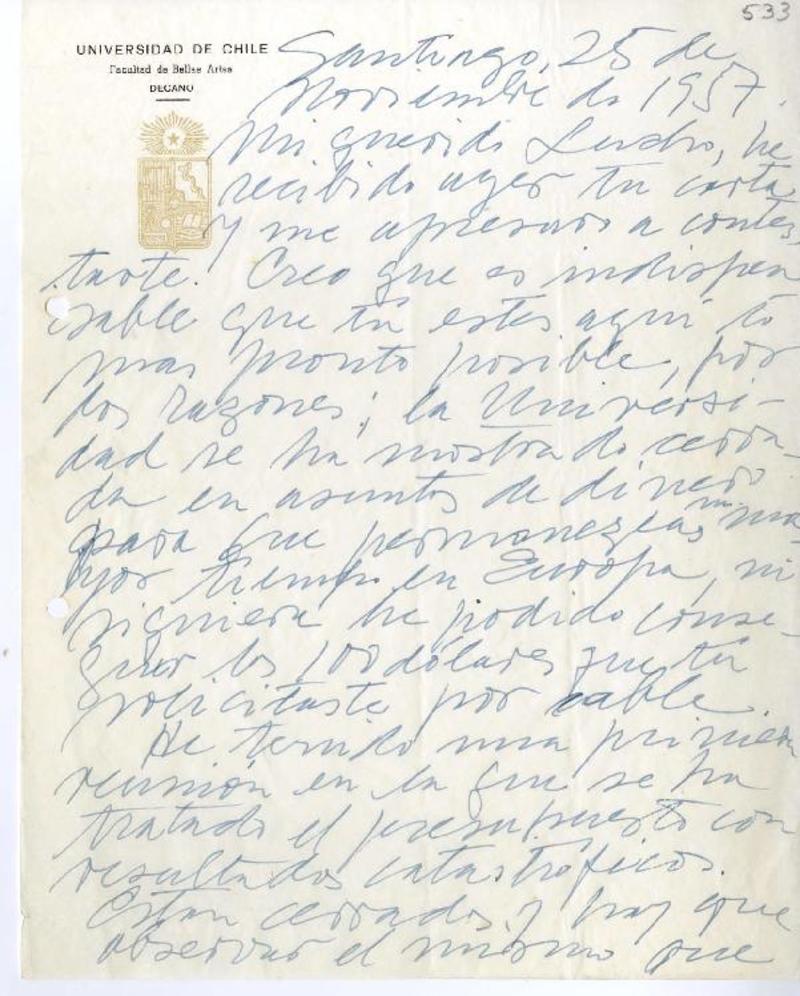 533
UNIVERSIDAD DE CHILE
Facultad de Bellas Artes
DECANO
Santiago, 25 de
Noviembre de 1957.
Mi querido Lucho, he
recibido ayer tu carta
y me apresuro a contes
tarte. Creo que es indispen
sable que tú estes aquí lo
mas pronto posible, por
dos razones; la Universi-
dad se ha mostrado cerra-
da en asuntos de dinero
para que permanezcas ma
yor tiempo en Europa, ni
siquiera he podido conse-
guir los 100 dólares que tú
solicitaste por cable.
He tenido una primera
reunión en la que se ha
tratado el presupuesto con
resultados catastróficos.
Estan cerrados y hay que
observar el mismo que